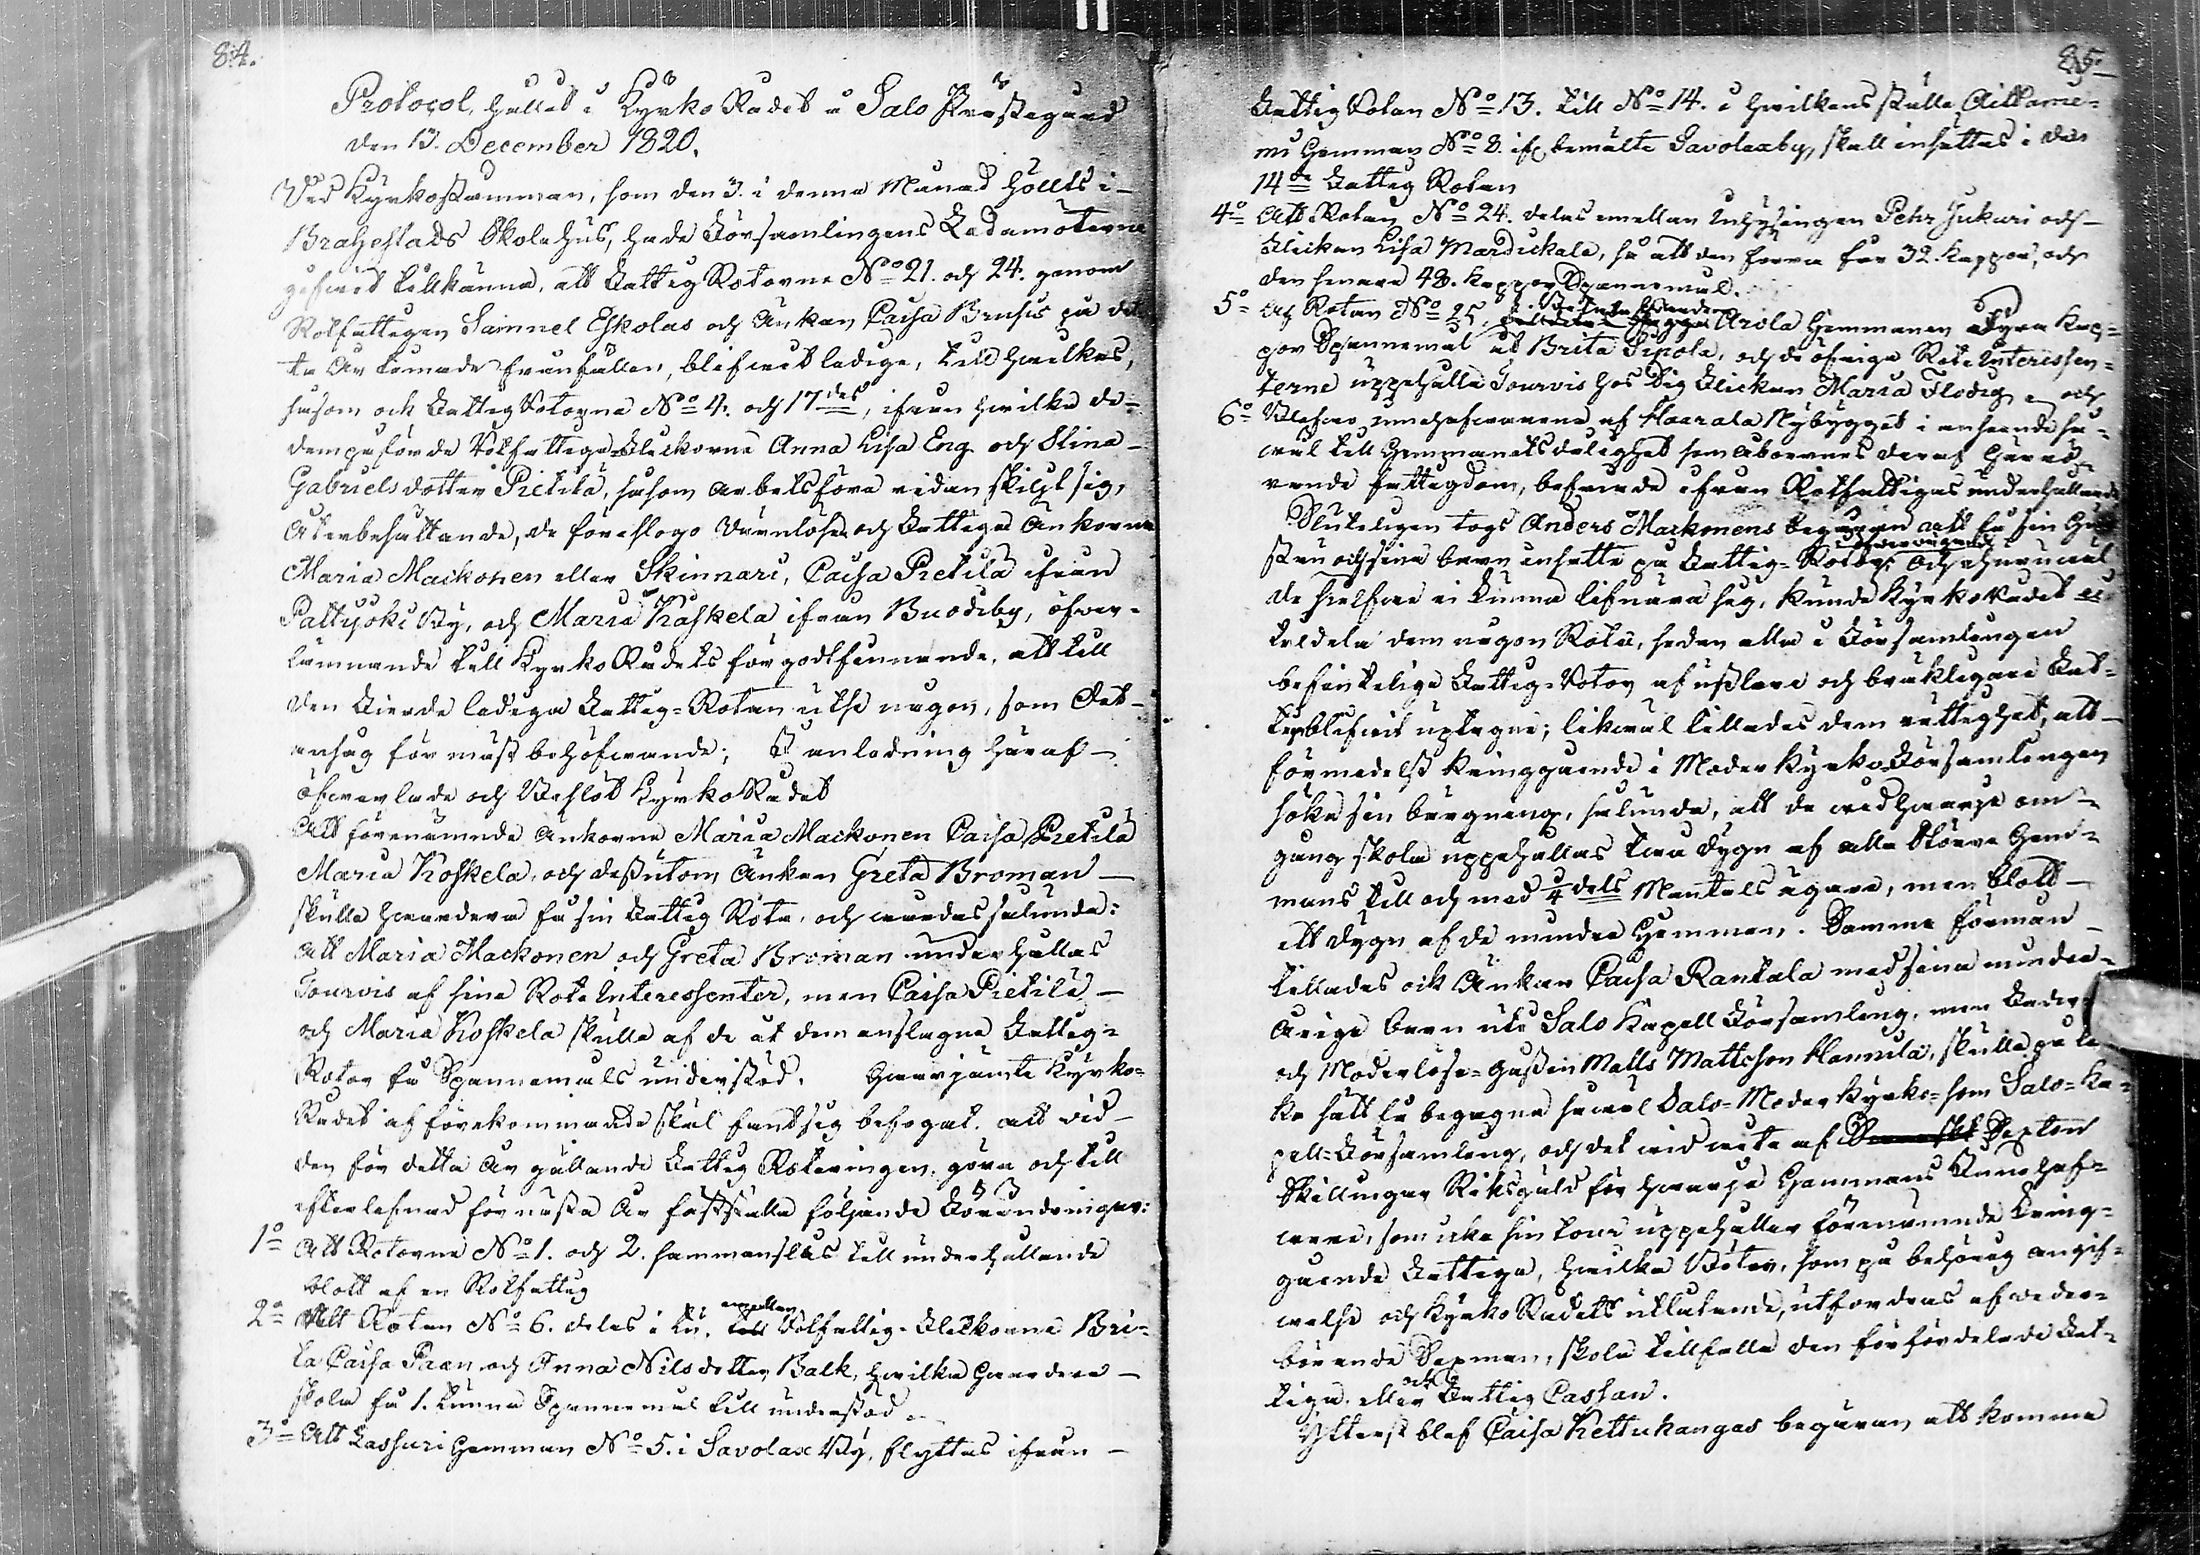 84.
Protocol, hållet i KyrkoRådet å Salo Prestegård
den 13. December 1820.
Wid Kyrkostämman, som den 3. i denna Månad hölls i
Brahestads Skolehus, hade Församlingens Ledamöterne
gifwit tillkänna, att FattigRotorne No 21. och 24. genom
Rotfattigen Samuel Eskolas och Änkan Caisa Brusis på det-
ta År timade frånfällen, blifwit ledige, till hwilkas,
såsom ock FattigRotorne No 4. och 17des, ifrån hwilka de
dem påförde Rotfattige Flickorne Anna Lisa Eng och Stina
Gabrielsdotter Pietilä, såsom arbetsföra redan skiljt sig,
återbesättande, de föreslogo wärnlösa och Fattiga Änkorna
Maria Maikonen eller Skinnari, Caisa Pietilä ifrån
Pattijoki By, och Maria Koskela ifrån Buodiby, öfwer-
lämnande till KyrkoRådets för godtfinnande, att till
den fierde lediga Fattig-Rotan utse någon, som det
ansåg för mäst behöfwande; I anledning häraf
öfwerlade och Beslöt KyrkoRådet
Att förenämnde Änkorne Maria Maikonen Caisa Pietilä
Maria Koskela, och dessutom Änkan Greta Broman
skulle hwardera få sin Fattig Rota, och wårdas sålunda:
att Maria Maikonen och Greta Broman underhållas
Tourvis af sina Rote Interessenter, men Caisa Pietilä
och Maria Koskela skulle af de åt dem anslagna Fattig-
Rotor få Spannemåls understöd. Hwarjämte Kyrko-
Rådet af förekommande skäl fant sig befogat att wid
den för detta År gällande Fattig Roteringen, göra och till
efterlefnad för nästa År fastställa följande Förändringar:
1o Att Rotorne No 1. och 2. sammanslås till underhållande
blott af en Rotfattig
2o Att Rotan No 6. delas i tu, emellan Rotfattig-Flickorna Bri-
ta Caisa Paan och Anna Nilsdotter Balk, hwilka hwardera
skola få 1. Tunna Spannemål till understöd
3o Att Lassuri Hemman No 5. i Savolax By, flyttas ifrån
85.
FattigRotan No 13. till No 14. i hwilkens ställe Aittamie-
mi Hemman No 8. if bemälte Savolaxby, skall insättas i den
14de Fattig Rotan
4o Att Rotan No 24. delas emellan Inhysingen Pehr Jukuri och
Flickan Lisa Mardickala, så att den förra får 32. Kappar, och
den senare 48. Kappar Spannemål.
5o Af Rotan No 25. Arola Hemmanen Fyra Kap-
par Spannemål åt Brita Sipola, och de öfrige Rote Interessen-
terne uppehålla Tourvis hos sig Flickan Maria Flodig och
6o Blefwo innehafwarena af Haarala Nybygget i anseende så-
wäl till Hemmanets dålighet som Åboernes deraf härrö-
rande fattigdom, befriade ifrån Rotfattigas underhållande
Sluteligen togs Anders Markonens begäran att få sin Hu-
stru och sina barn insatte på Fattig-Rotor och ehuruwäl
de sielfwa ei kunna lifnära sig, kunde KyrkoRådet ei
tilldela dem någon Rota, sedan alla i Församlingen
befintelige Fattig-Rotor af uslare och bräkligare Fat-
tige blifwit uptagne; likwäl tillades dem rättighet, att
förmedelst kringgående i ModerKyrkoFörsamlingen
söka sin bärgning, sålunda, att de wid hwarje om-
gång skola uppehållas twå dygn af alla större Hem-
mans till och med 1/4dels Mantals ägare, men blott
ett dygn af de mindre Hemman. Samma förmån
tillades ock Änkan Caisa Rantala med sina minder-
åriga barn uti Salo Kapell Församling, men Fader
och Moderlöse-gossen Matts Mattsson Hannila, skulle på li-
ka sätt få begagna såwäl Salo-ModerKyrko-som Salo-Ka-
pell-Församling, och det wid wite af Sexton
Skillingar Riksgäld för hwarje Hemmans Innehaf-
ware, som icke sin tour uppehåller förenämnde kring-
gående Fattiga, hwilka Böter, som på behörig angif-
welse och KyrkoRådets utlåtande, utfordras af weder-
börande Sexman, skola tillfalla den förfördelade Fat-
tiga. eller ock Fattig Cassan.
Ytterst blef Caisa Kettukangas begäran att komma